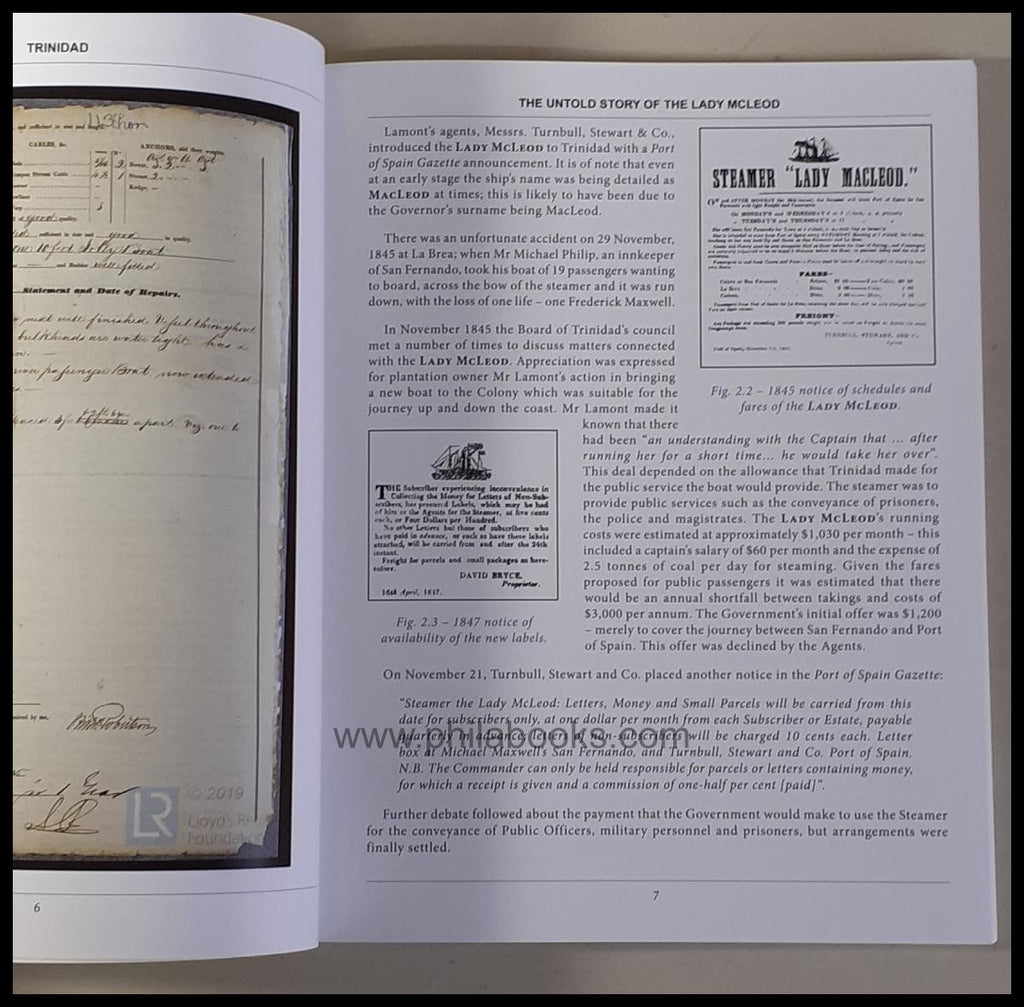 TRINIDAD
and sufficient in size and
CABLES, &c.
ANCHORS, and their weights.
good quality.
sufficient in size and good in quality.
Jolly Boat
and Rudder well fitted
Statement and Date of Repairs.
neat well finished Vessel throughout
bulkheads are water tight. has a
passenger Boat, now intended
apart. Viz. one to
LR
© 2019
Lloyd's Re
Foundatio
6
THE UNTOLD STORY OF THE LADY MCLEOD
Lamont's agents, Messrs. Turnbull, Stewart & Co.,
introduced the LADY MCLEOD to Trinidad with a Port
of Spain Gazette announcement. It is of note that even
at an early stage the ship's name was being detailed as
MACLEOD at times; this is likely to have been due to
the Governor's surname being MacLeod.
There was an unfortunate accident on 29 November,
1845 at La Brea; when Mr Michael Philip, an innkeeper
of San Fernando, took his boat of 19 passengers wanting
to board, across the bow of the steamer and it was run
down, with the loss of one life – one Frederick Maxwell.
In November 1845 the Board of Trinidad's council
met a number of times to discuss matters connected
with the LADY MCLEOD. Appreciation was expressed
for plantation owner Mr Lamont's action in bringing
a new boat to the Colony which was suitable for the
journey up and down the coast. Mr Lamont made it
known that there
had been "an understanding with the Captain that ... after
running her for a short time... he would take her over".
This deal depended on the allowance that Trinidad made for
the public service the boat would provide. The steamer was to
provide public services such as the conveyance of prisoners,
the police and magistrates. The LADY MCLEOD's running
costs were estimated at approximately $1,030 per month – this
included a captain's salary of $60 per month and the expense of
2.5 tonnes of coal per day for steaming. Given the fares
proposed for public passengers it was estimated that there
would be an annual shortfall between takings and costs of
$3,000 per annum. The Government's initial offer was $1,200
– merely to cover the journey between San Fernando and Port
of Spain. This offer was declined by the Agents.
STEAMER "LADY MACLEOD."
FARES
FREIGHT
TURNBULL, STEWART, AND CO.
Fig. 2.2 – 1845 notice of schedules and
fares of the LADY MCLEOD.
THE Subscriber experiencing inconvenience in
Collecting the Money for Letters of Non-Sub-
scribers, has procured Labels, which may be had
of him or the Agents for the Steamer, at five cents
each, or Four Dollars per Hundred.
No other Letters but those of subscribers who
have paid in advance, or such as have these labels
attached, will be carried from and after the 24th
instant.
Freight for parcels and small packages as here-
tofore.
DAVID BRYCE,
Proprietor.
16th April, 1847.
Fig. 2.3 – 1847 notice of
availability of the new labels.
On November 21, Turnbull, Stewart and Co. placed another notice in the Port of Spain Gazette:
"Steamer the Lady McLeod: Letters, Money and Small Parcels will be carried from this
date for subscribers only, at one dollar per month from each Subscriber or Estate, payable
quarterly in advance, letters of non-subscribers will be charged 10 cents each. Letter
box at Michael Maxwell's San Fernando, and Turnbull, Stewart and Co. Port of Spain.
N.B. The Commander can only be held responsible for parcels or letters containing money,
for which a receipt is given and a commission of one-half per cent [paid]".
Further debate followed about the payment that the Government would make to use the Steamer
for the conveyance of Public Officers, military personnel and prisoners, but arrangements were
finally settled.
7
www.philabooks.com